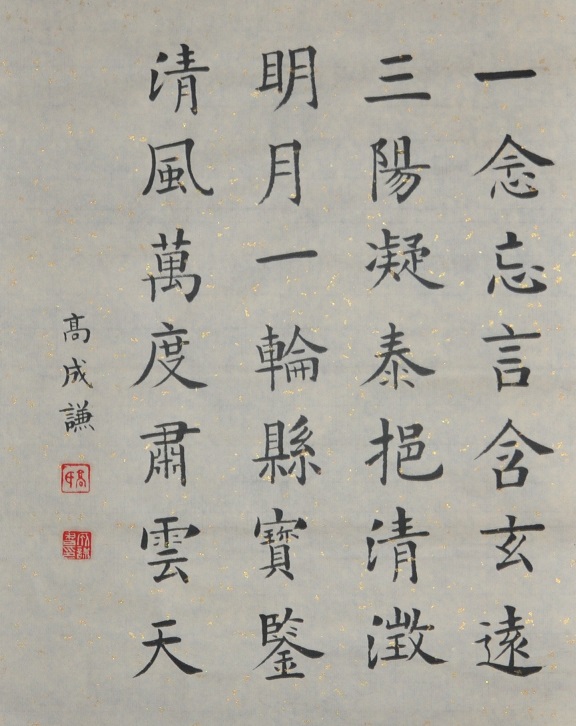 一念忘言含玄遠
三陽凝泰挹清澂
明月一輪縣寶鑒
清風萬度肅雲天
高成謙